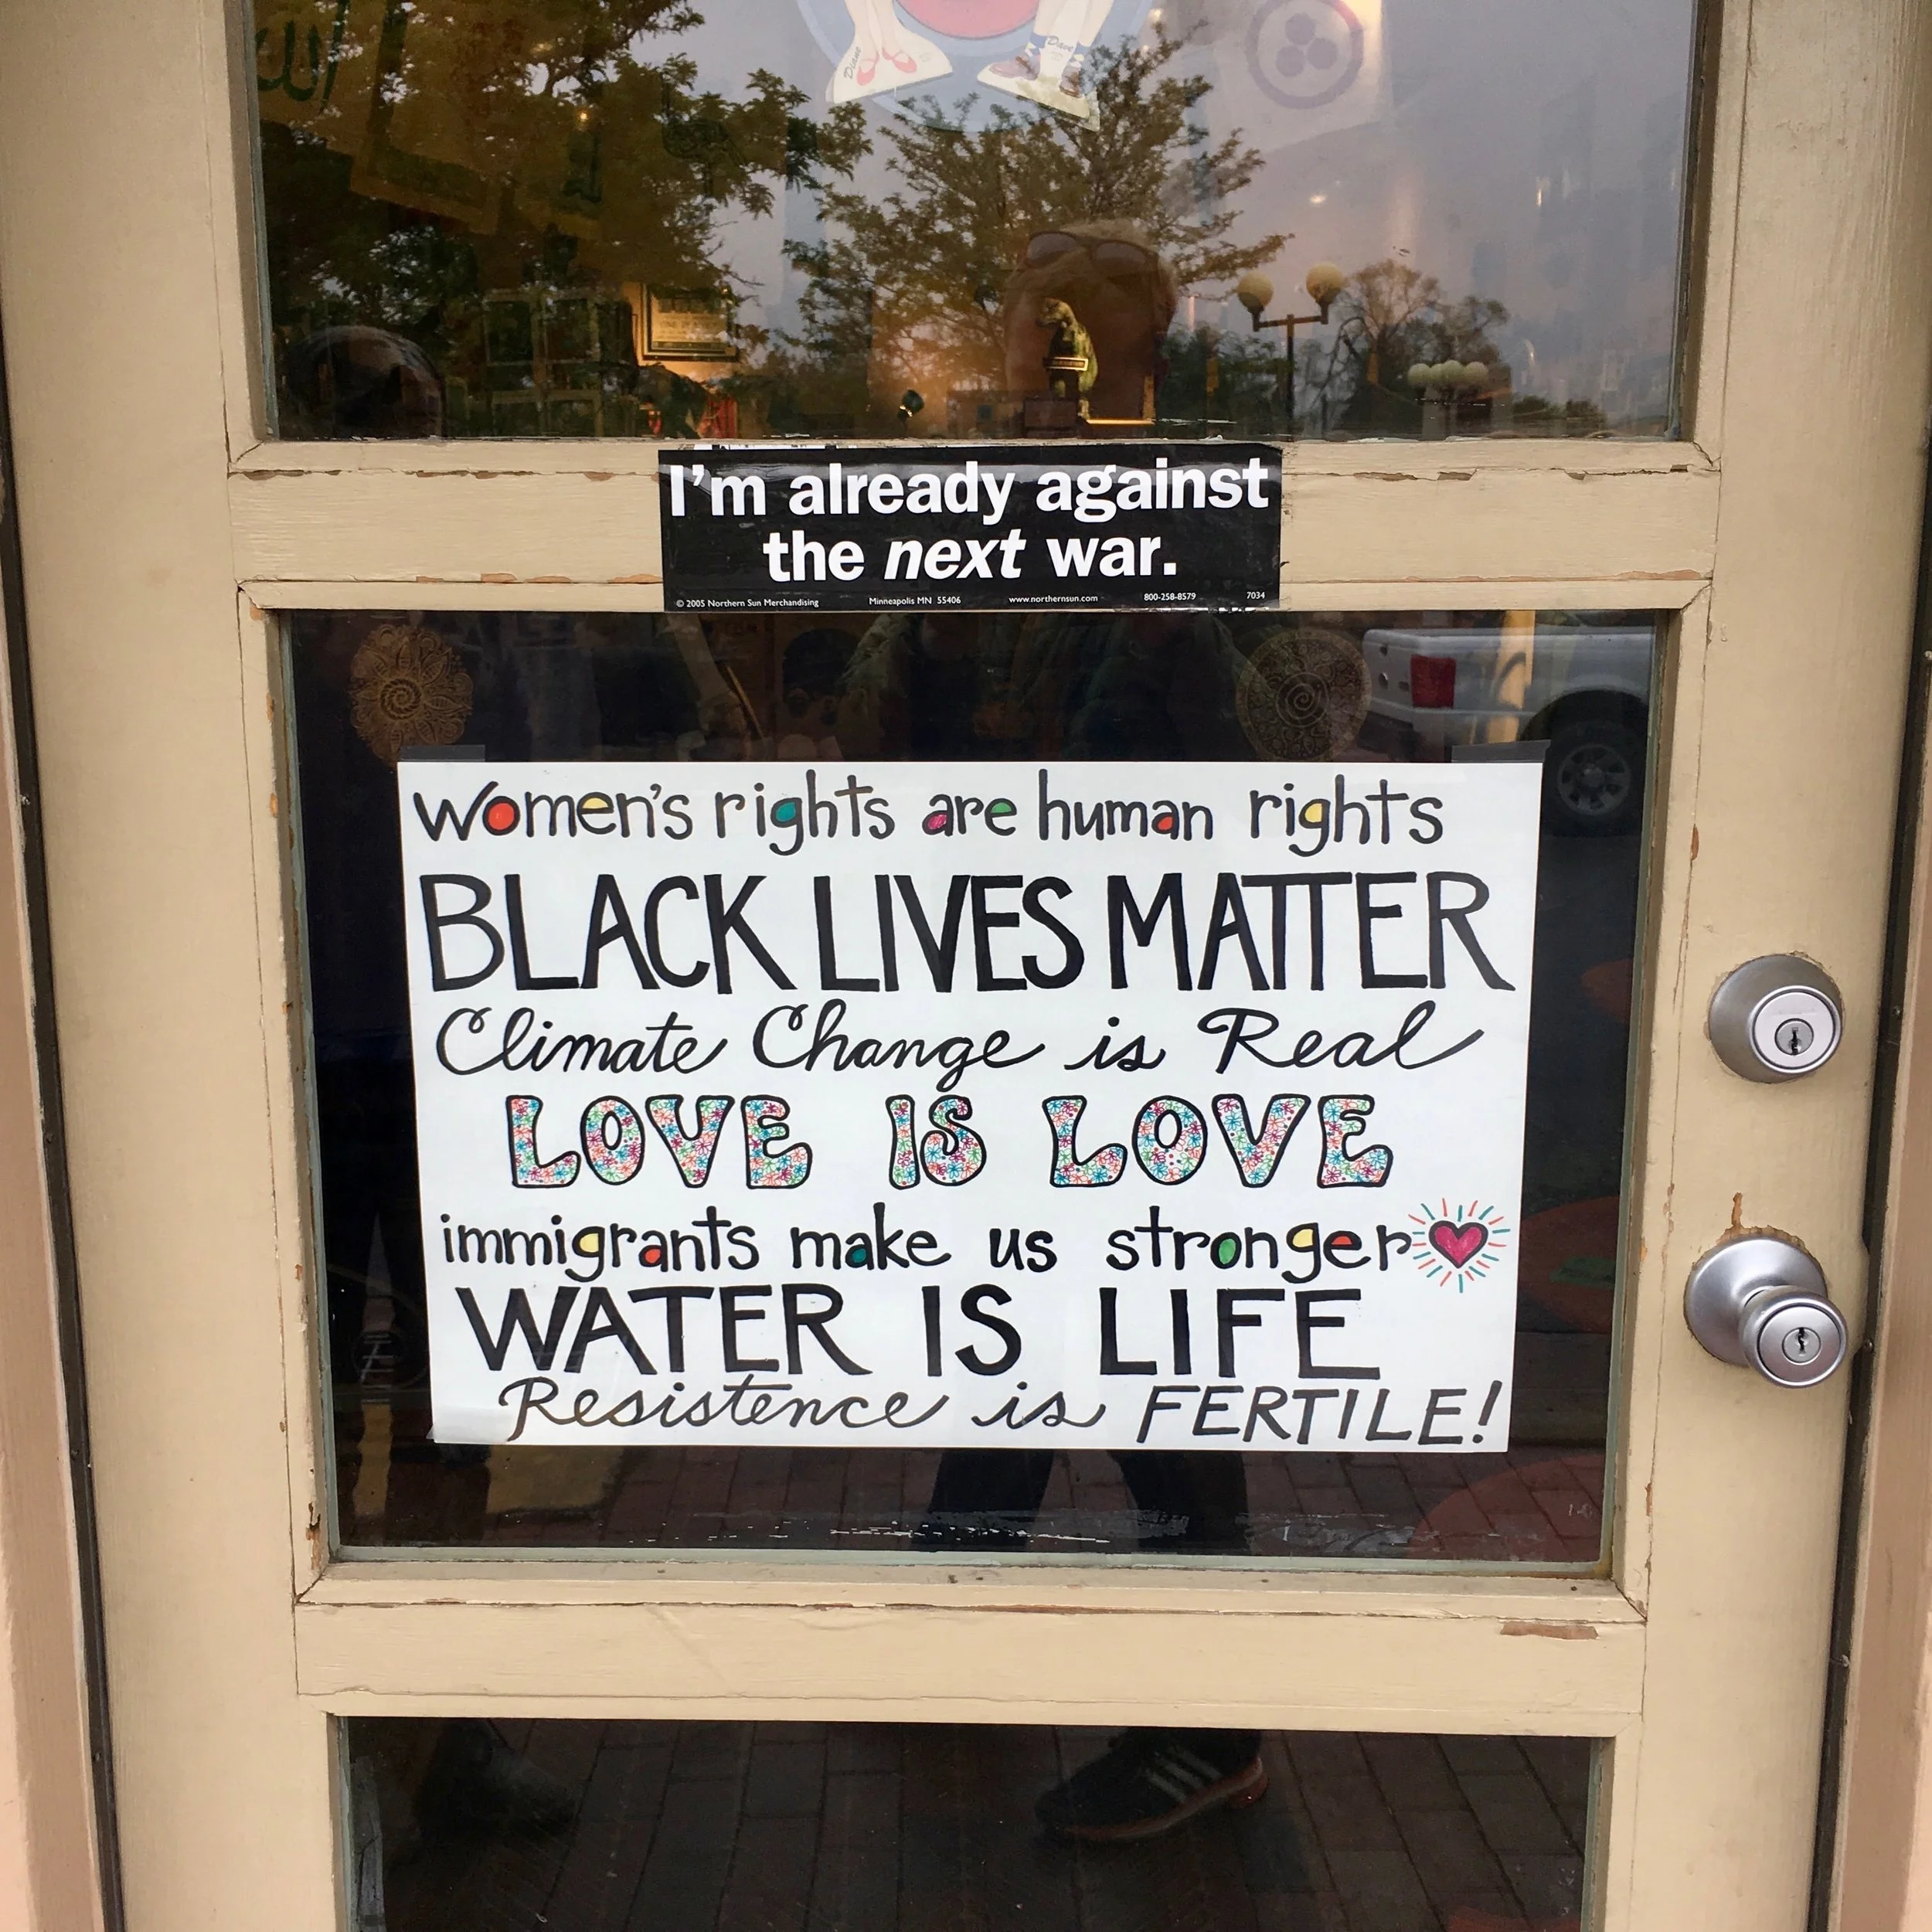 الله
Diane
Dave
I'm already against
the next war.
© 2005 Northern Sun Merchandising Minneapolis MN 55406 www.northernsun.com 800-258-8579 7034
women's rights are human rights
BLACK LIVES MATTER
Climate Change is Real
LOVE IS LOVE
immigrants make us stronger
WATER IS LIFE
Resistence is FERTILE!